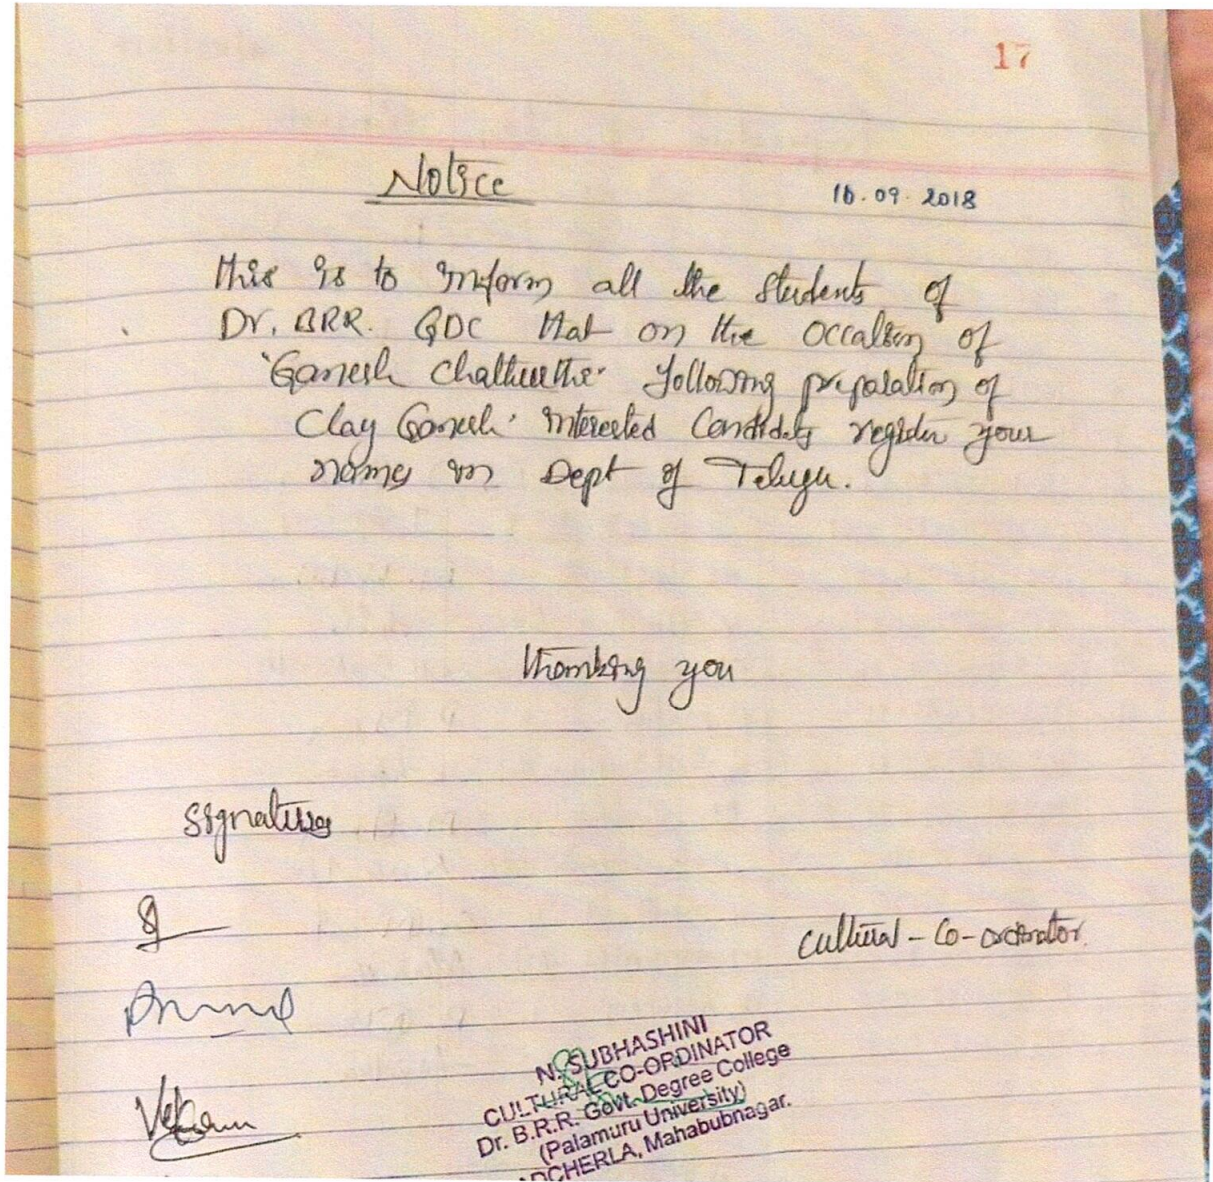 17
Notice
10.09.2018
this is to inform all the students of
Dr. BRR. GDC that on the occasion of
'Ganesh Chathurthi' following preparation of
Clay Ganesh' interested Candidates register your
names in Dept of Telugu.
thanking you
Signatures
Cultural-Co-ordinator.
N. SUBHASHINI
CULTURAL CO-ORDINATOR
Dr. B.R.R. Govt. Degree College
(Palamuru University)
ADCHERLA, Mahabubnagar.